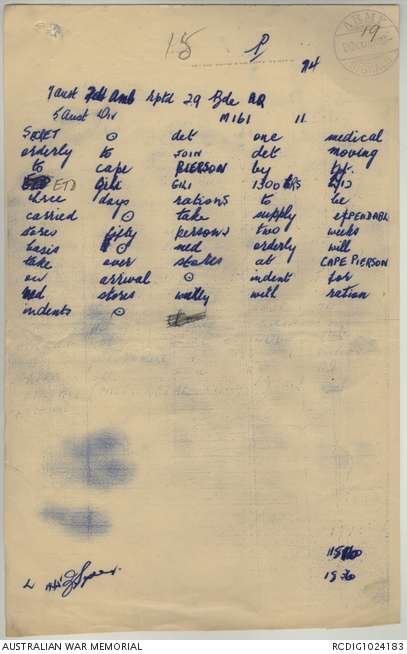 15 P 19
7 Aust Fd Amb rptd 29 Bde HQ
5 Aust Div M161 11
SECRET ⊙ det one medical
orderly to JOIN det moving
to CAPE PIERSON by
ETD GILI GILI 1300 HRS
three days rations to be
carried ⊙ take supply EXPENDABLE
stores fifty persons two weeks
basis ⊙ med orderly will
take over stores at CAPE PIERSON
on arrival ⊙ indent for
med stores weekly with ration
indents ⊙
AUSTRALIAN WAR MEMORIAL RCDIG1024183